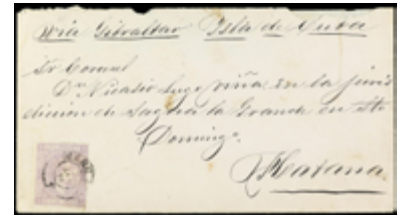 Via Gibraltar Isla de Cuba
Sr Coronel
Dn Nicasio Lugo viña en la juris
diccion de Sagua la Grande en Sto
Domingo.
Habana.